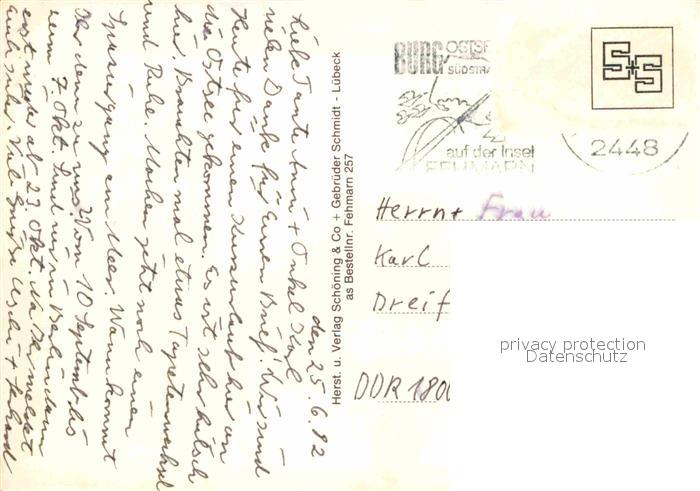 den 25.6.82
Liebe Tante Anni + Onkel Karl
vielen Dank für Euren Brief. Wir sind
heute für einen Kurzurlaub hier an
die Ostsee gekommen. Es ist sehr hübsch
hier. Brauchten mal etwas Tapetenwechsel
und Ruhe. Machen jetzt noch einen
Spaziergang am Meer. Wann kommt
Ihr denn zu uns? Vom 10 September bis
zum 7 Okt. sind wir in Berlin dann
erst wieder ab 23 Okt. Na Ihr meldet
Euch sicher. Viele Grüße Uschi +
Herst. u. Verlag Schöning & Co + Gebrüder Schmidt - Lübeck
as Bestellnr. Fehmarn 257
BURG OSTSEE
SÜDSTRA
auf der Insel
FEHMARN
2448
S+S
Herrn + Frau
Karl
Dreif
DDR 1800
privacy protection
Datenschutz